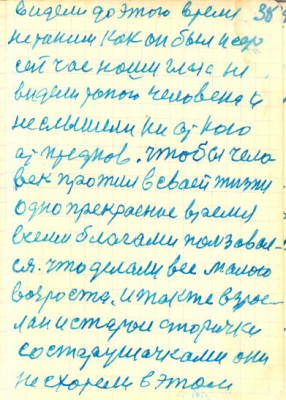 видели до этого время. 38
не таким как он был и до
сей час наши глаза не
видели такого человека и
не слышели ни от кого
от предков. Чтобы чело
век прожил в сваей жизни
одно прекрасные время
всеми благами ползовал-
ся. что делали все малою
возроста. и также взрос-
лаи и старые старички
со старушачками они
не схарели в этом